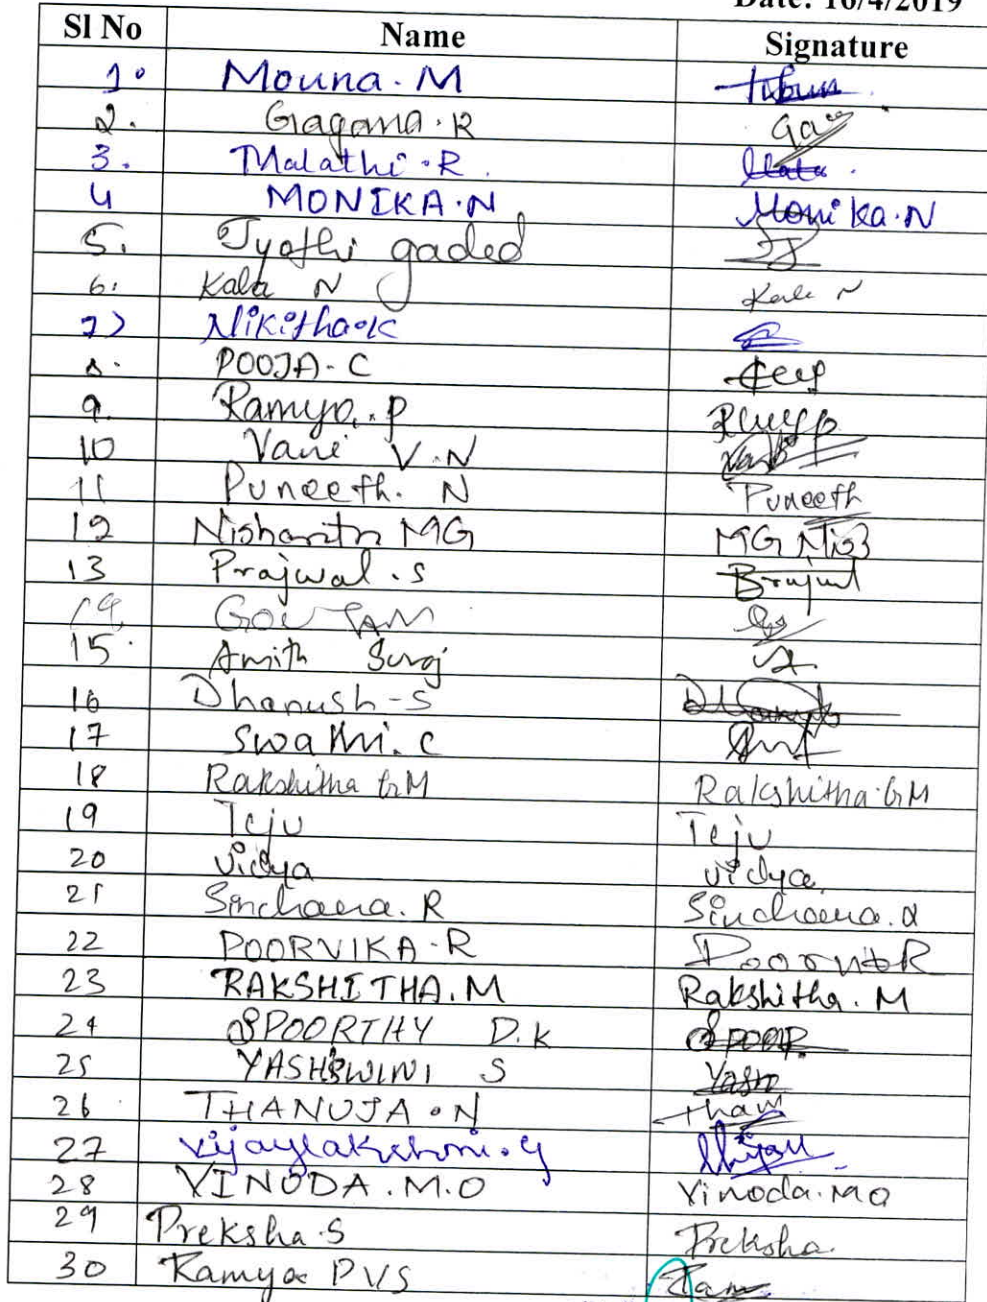 Date: 16/4/2019
Sl No Name Signature
1. Mouna.M
2. Gagana.R
3. Malathi.R.
4 MONIKA.N Monika.N
5. Jyothi gaded
6. Kala N Kala N
7) Nikitha.K
8. POOJA.C
9. Ramya.P
10 Vani V.N
11 Puneeth. N Puneeth
12 Nishanth MG
13 Prajwal.S
14. GOUTAM
15. Amith Suraj
16 Dhanush-S
17 Swathi.C
18 Rakshitha G.M Rakshitha.G.M
19 Teju Teju
20 Vidya Vidya
21 Sinchana.R Sinchana.R
22 POORVIKA.R
23 RAKSHITHA.M Rakshitha.M
24 SPOORTHY D.K
25 YASHSWINI S Yash
26 THANUJA.N
27 Vijaylakshmi.G
28 VINODA.M.O Vinoda.MO
29 Preksha.S Preksha.
30 Ramya PVS